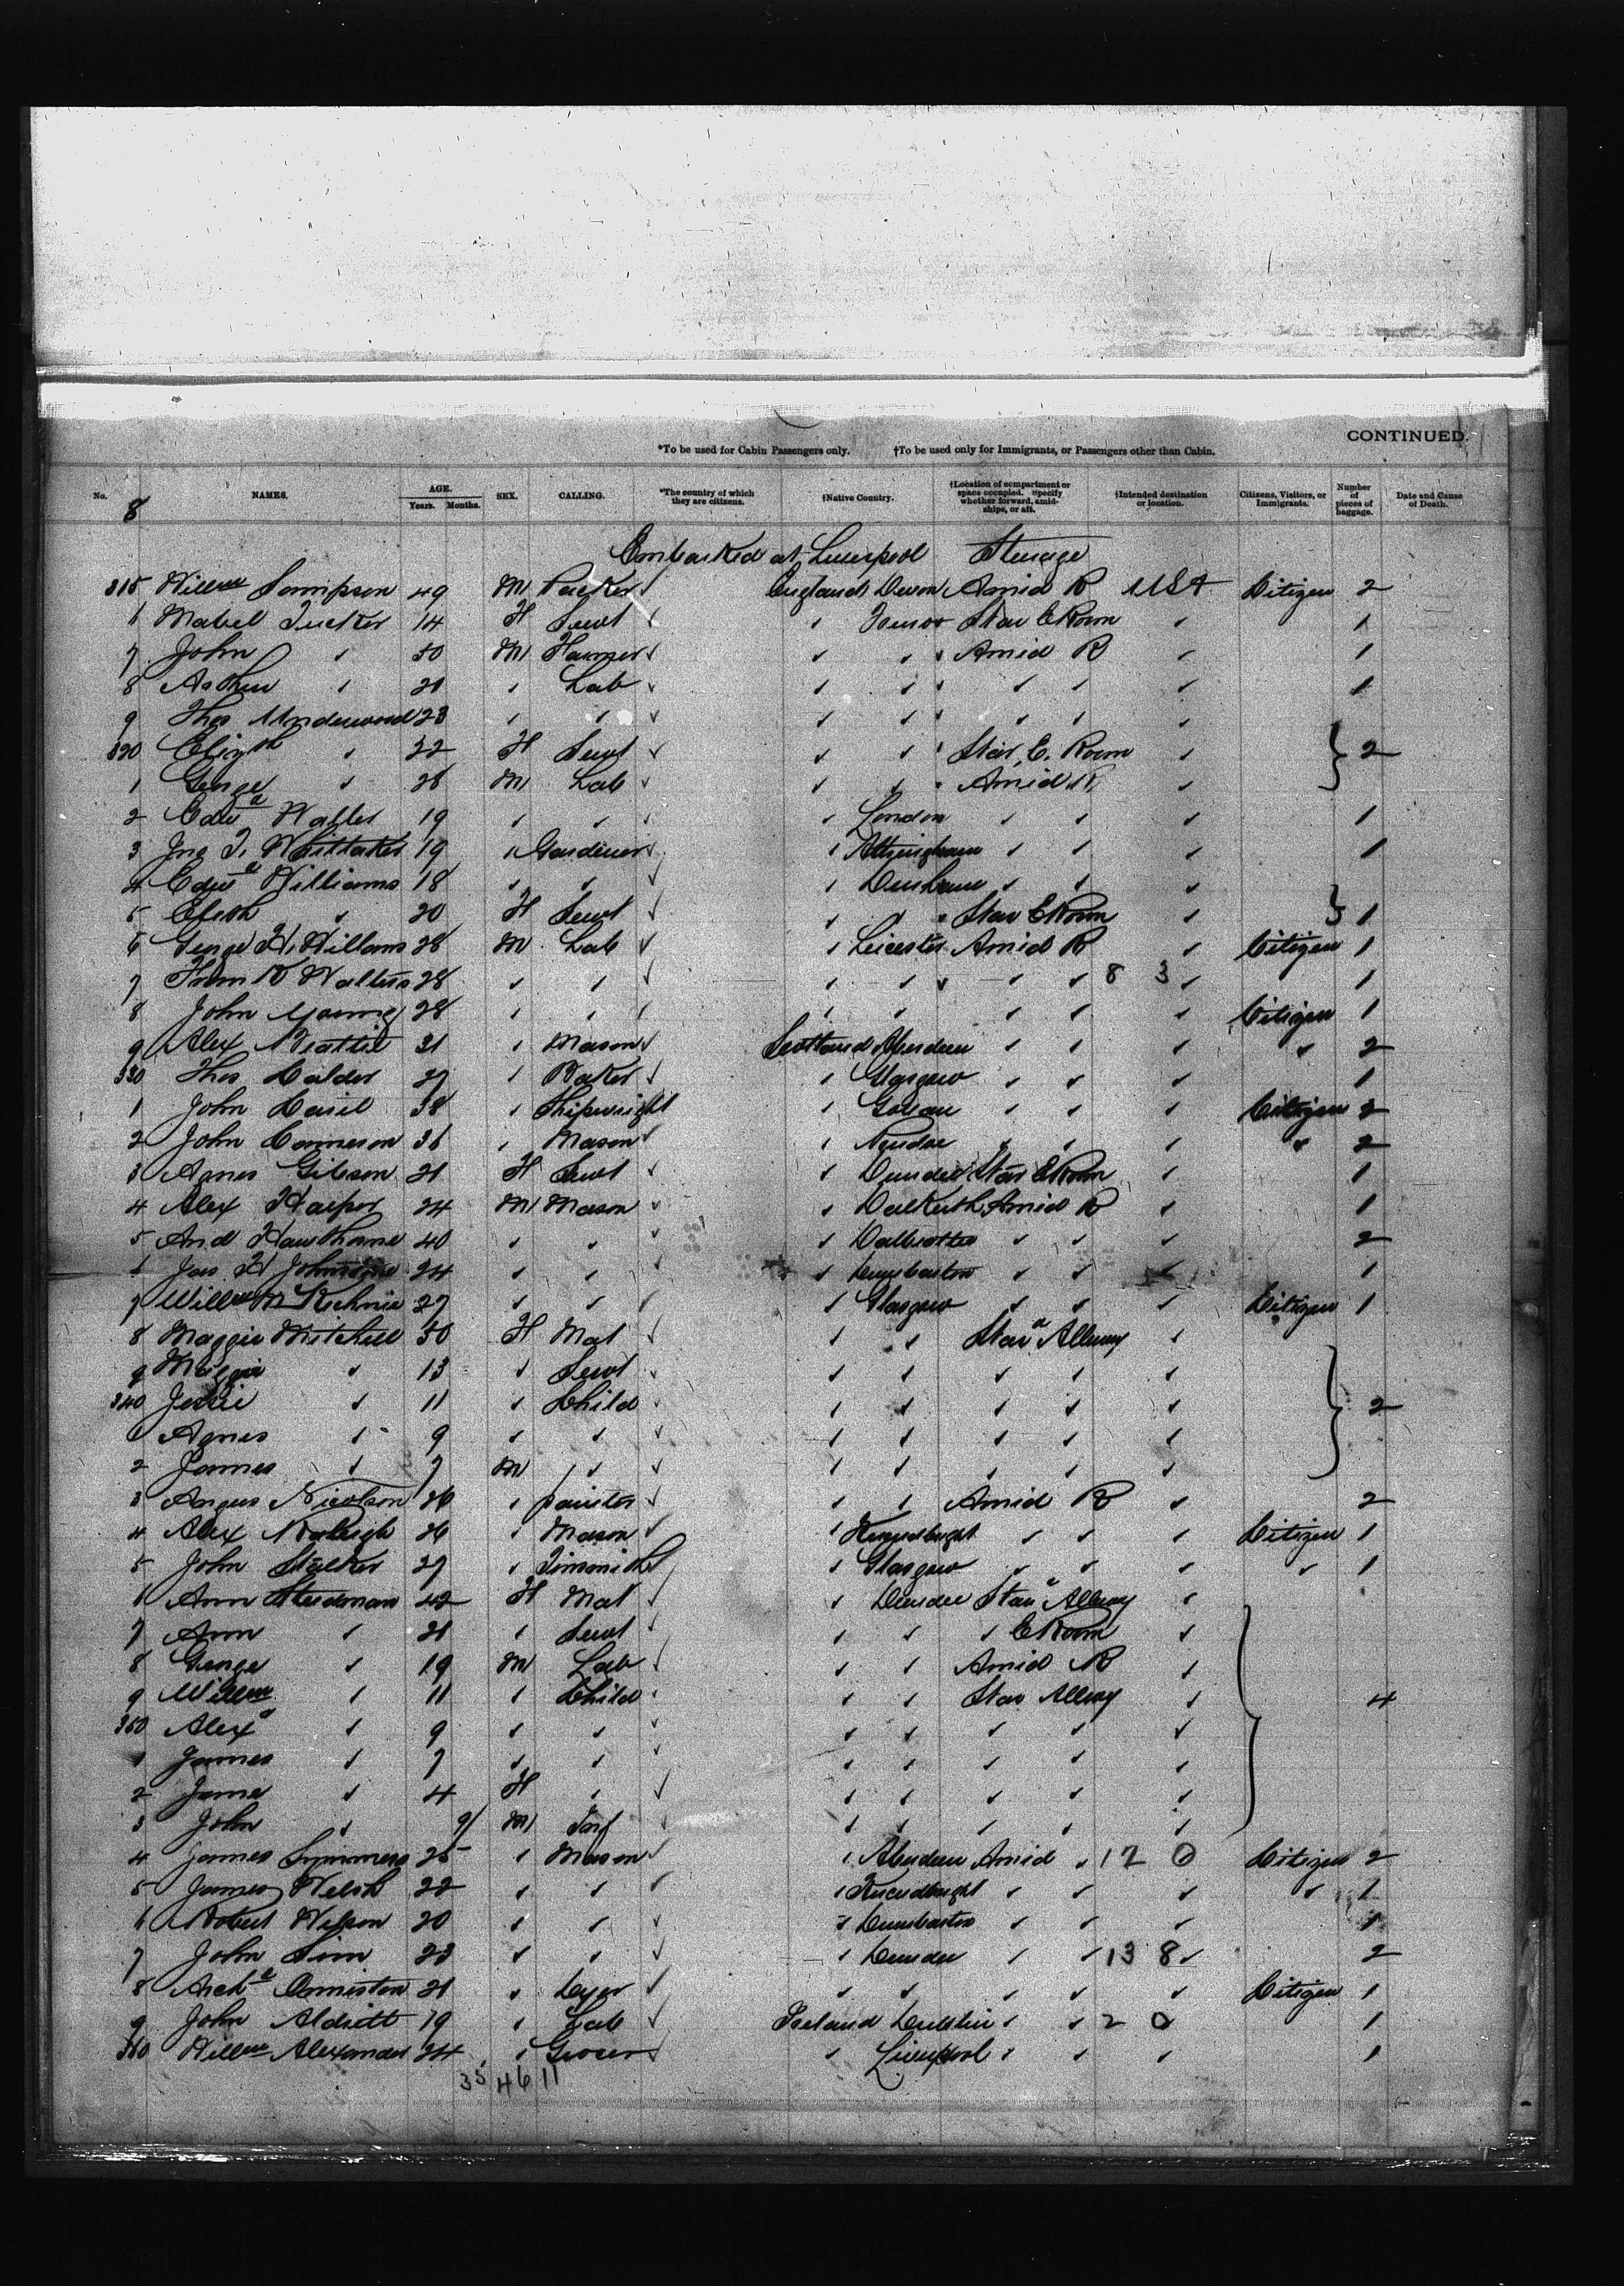 CONTINUED.
*To be used for Cabin Passengers only. †To be used only for Immigrants, or Passengers other than Cabin.
No. NAMES. AGE. Years. Months. SEX. CALLING. *The country of which they are citizens. †Native Country. †Location of compartment or space occupied. Specify whether forward, amidships, or aft. †Intended destination or location. Citizens, Visitors, or Immigrants. Number of pieces of baggage. Date and Cause of Death.
8
Embarked at Liverpool Steerage
315 Willm Sampson 49 M Packer England Devon Amid R USA Citizen 2
6 Mabel Tucker 14 F Servt ✓ Star E Room ✓ 1
7 John ✓ 50 M Farmer ✓ ✓ Amid R ✓ 1
8 Arthur ✓ 21 ✓ Lab ✓ ✓ ✓ ✓ ✓ 1
9 Thos Underwood 23 ✓ ✓ ✓ ✓ ✓ ✓ ✓
320 Elizth ✓ 22 F Servt ✓ ✓ Star E. Room ✓ 2
1 George ✓ 28 M Lab ✓ ✓ Amid R ✓
2 Edwd Waller 19 ✓ ✓ ✓ London ✓ ✓ ✓ 1
3 Jno T. Whittaker 19 ✓ Gardener ✓ ✓ ✓ ✓ 1
4 Edwd Williams 18 ✓ ✓ ✓ Durham ✓ ✓ ✓
5 ✓ 20 F Servt ✓ ✓ Star E Room ✓ 1
6 George H. Willams 28 M Lab ✓ Leicester Amid R ✓ Citizen 1
7 Walters 28 ✓ ✓ ✓ ✓ ✓ ✓ 8 3 ✓ 1
8 John Young 28 ✓ ✓ ✓ ✓ ✓ ✓ ✓ Citizen 1
9 Alex Beattie 31 ✓ Mason Scotland Aberdeen ✓ ✓ ✓ ✓ 2
330 Thos Calder 27 ✓ Baker ✓ Glasgow ✓ ✓ ✓ 1
1 John 38 ✓ Shipwright ✓ Govan ✓ ✓ ✓ Citizen 2
2 John Cameron 36 ✓ Mason ✓ ✓ ✓ ✓ ✓ 2
3 Agnes Gibson 21 F Servt ✓ Dundee Star E Room ✓ 1
4 Alex Harper 24 M Mason ✓ Dalkeith Amid R ✓ 1
5 And Hawthorne 40 ✓ ✓ ✓ Dalbeattie ✓ ✓ ✓ 2
6 Jas H Johnstone 24 ✓ ✓ ✓ Dumbarton ✓ ✓ ✓ 1
7 Willm McKechnie 27 ✓ ✓ ✓ Glasgow ✓ ✓ ✓ Citizen 1
8 Maggie Mitchell 30 F Mat ✓ ✓ Star Allway ✓
9 Maggie ✓ 13 ✓ Servt ✓ ✓ ✓ ✓ ✓
340 Jessie ✓ 11 ✓ Child ✓ ✓ ✓ ✓ ✓ 2
1 Agnes ✓ 9 ✓ ✓ ✓ ✓ ✓ ✓ ✓
2 James ✓ 7 M ✓ ✓ ✓ ✓ ✓ ✓
3 Angus Nicolson 26 ✓ Painter ✓ ✓ Amid R ✓ 2
4 Alex Raleigh 26 ✓ Mason ✓ ✓ ✓ ✓ Citizen 1
5 John Stalker 27 ✓ Tinsmith ✓ Glasgow ✓ ✓ ✓ ✓ 1
6 Ann Steedman 42 F Mat ✓ Dundee Star Allway ✓
7 Ann ✓ 21 ✓ Servt ✓ ✓ ✓ E Room ✓
8 George ✓ 19 M Lab ✓ ✓ Amid R ✓
9 Willm ✓ 11 ✓ Child ✓ ✓ Star Allway ✓ 4
350 Alexr ✓ 9 ✓ ✓ ✓ ✓ ✓ ✓ ✓
1 James ✓ 7 ✓ ✓ ✓ ✓ ✓ ✓ ✓
2 Jane ✓ 4 F ✓ ✓ ✓ ✓ ✓ ✓
3 John ✓ 9 M Inf ✓ ✓ ✓ ✓ ✓
4 James Simmers 25 ✓ Mason ✓ Aberdeen Amid ✓ 12 0 Citizen 2
5 James Welsh 22 ✓ ✓ ✓ ✓ ✓ ✓ ✓ 1
6 Robert Wilson 20 ✓ ✓ ✓ Dumbarton ✓ ✓ ✓ 1
7 John Sim 23 ✓ ✓ ✓ Dundee ✓ ✓ 13 8 ✓ 2
8 Archd Ormiston 21 ✓ Dyer ✓ ✓ ✓ ✓ ✓ Citizen 1
9 John Aldritt 19 ✓ Lab Ireland Dublin ✓ ✓ 2 0 1
360 Willm Alexander 24 ✓ Grocer ✓ Liverpool ✓ ✓ ✓ 1
35 46 11